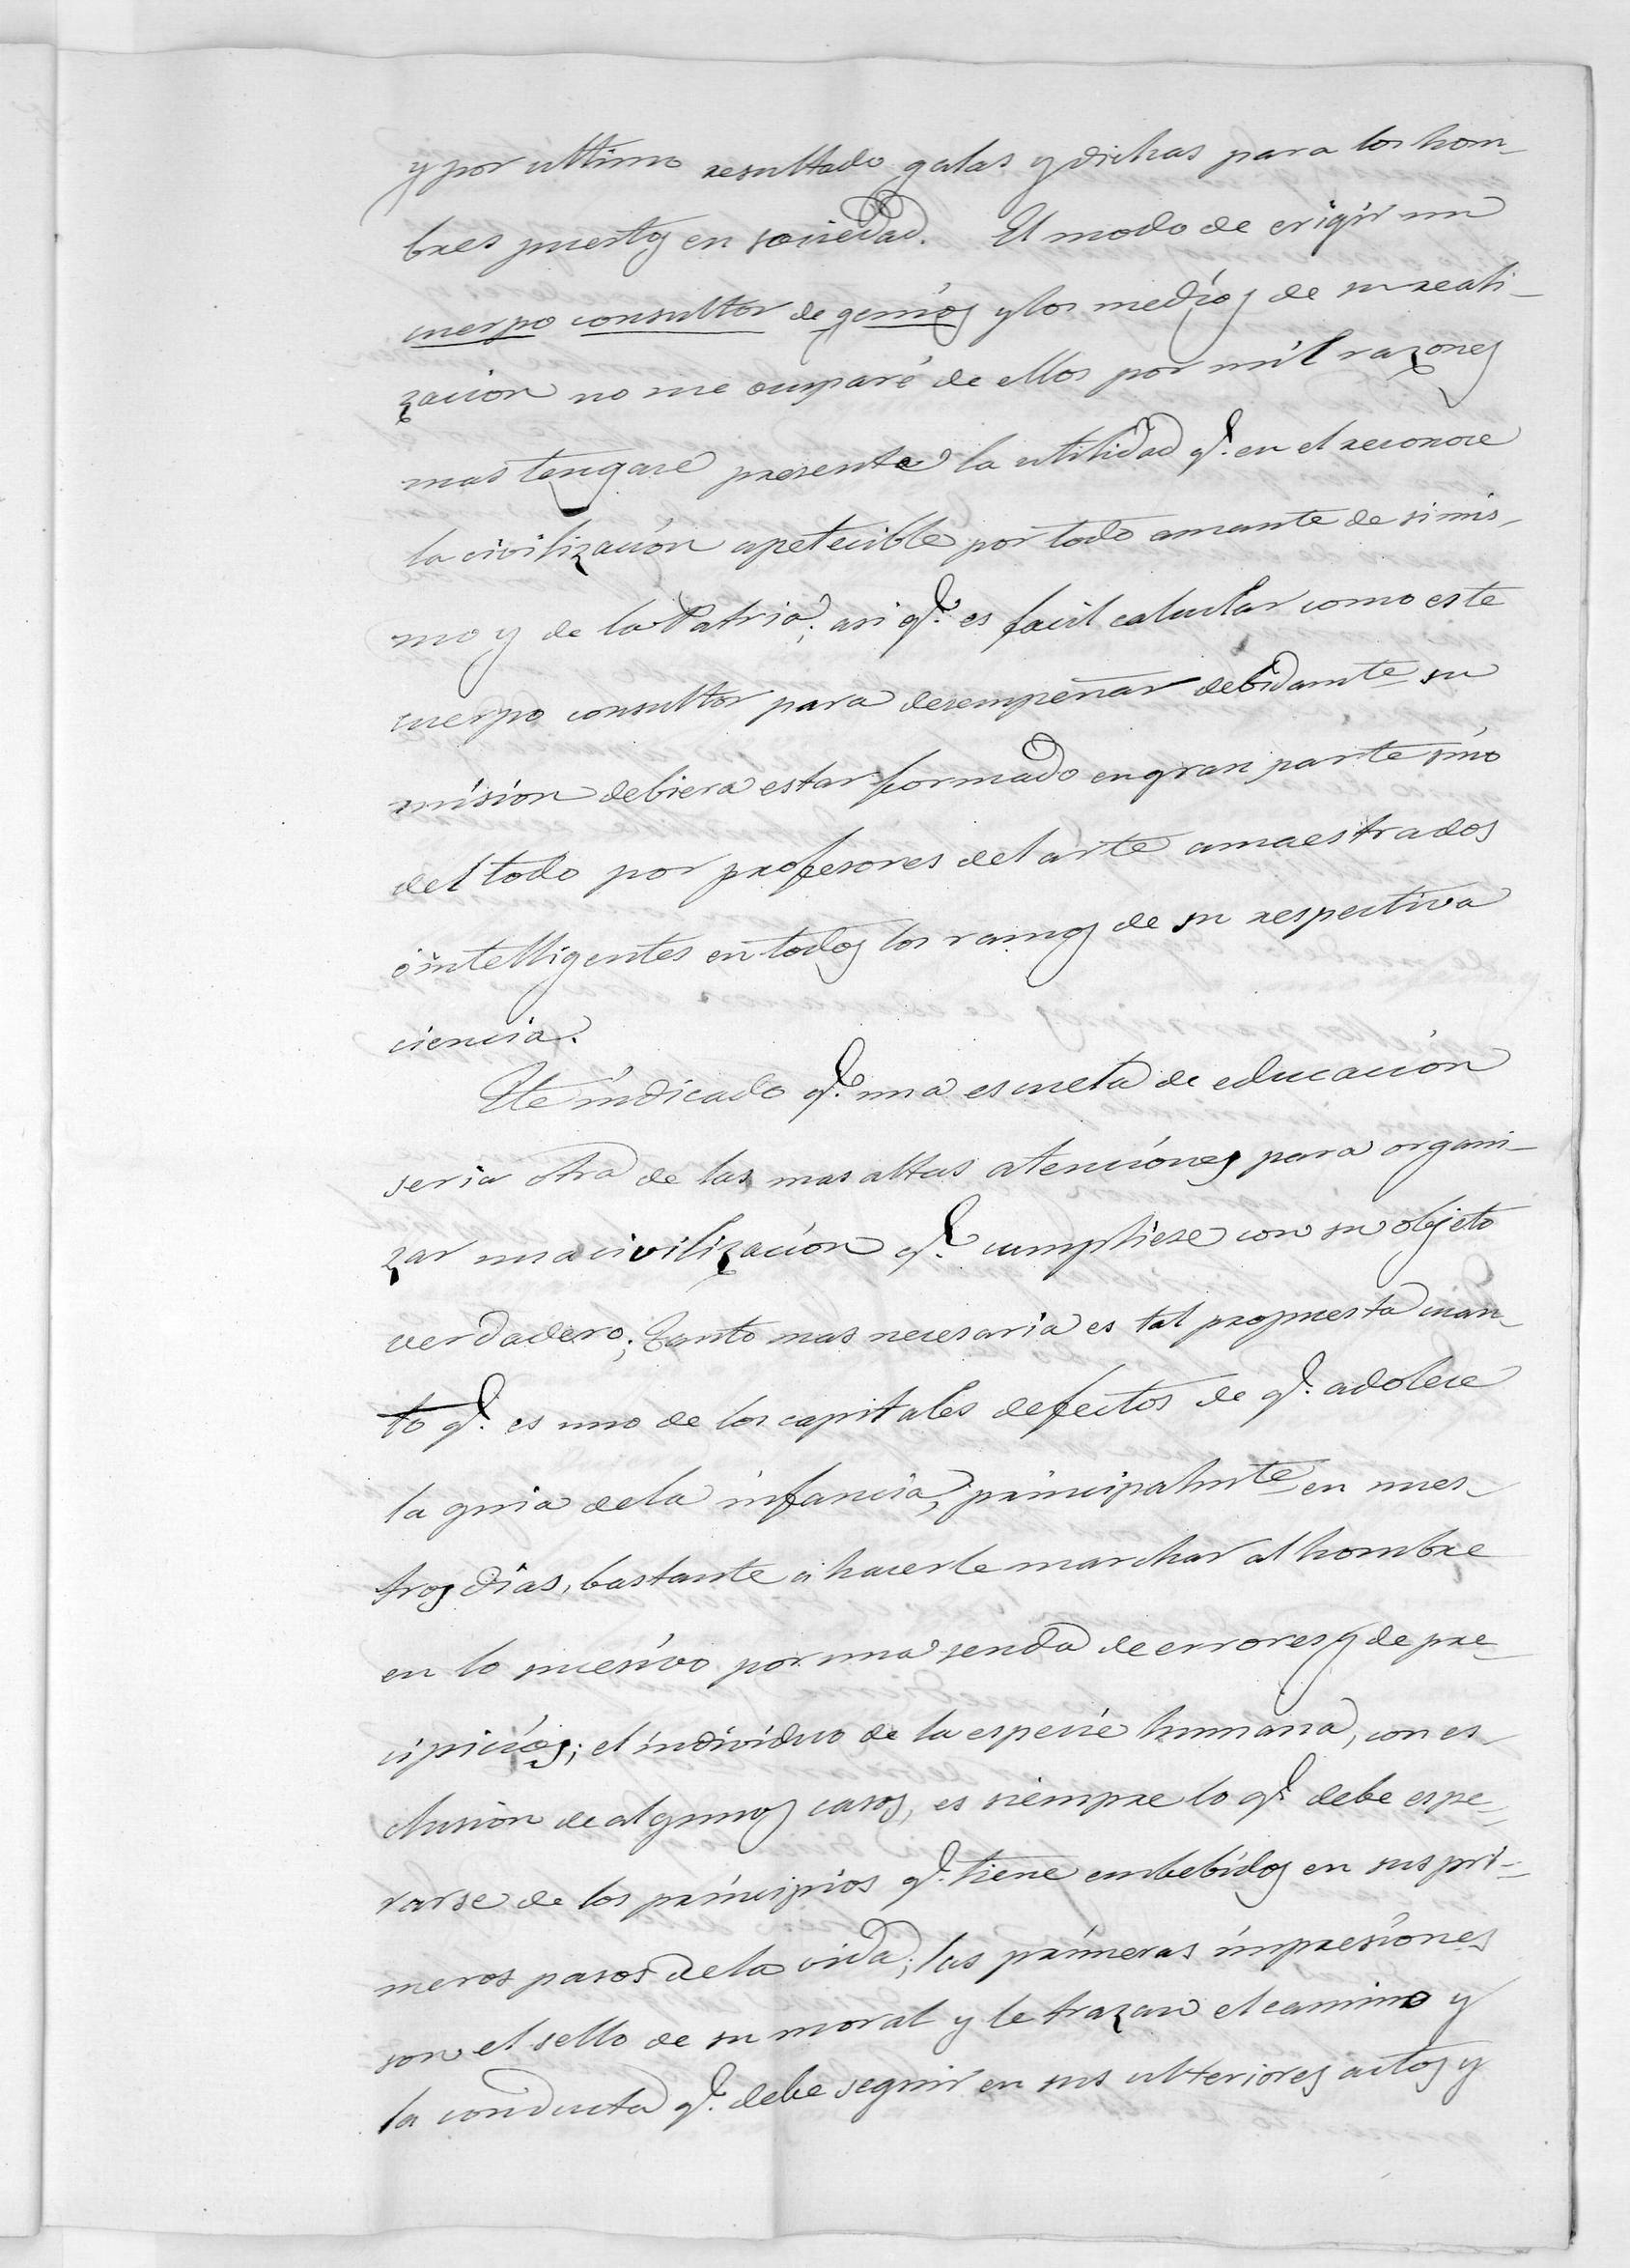 y por ultimo resultado galas y dichas para los hom-
bres puestos en sociedad. El modo de erigir un
cuerpo consultor de genios y los medios de su reali-
zacion no me ocuparé de ellos por mil razones
mas tengase presente la utilidad q.e en el reconoce
la civilización apetecible por todo amante de si mis-
mo y de la Patria; asi q.e es facil calcular como este
cuerpo consultor para desempeñar debidam.te su
mision debiera estar formado en gran parte sino
del todo por profesores del arte amaestrados
é intelligentes en todos los ramos de su respectiva
ciencia.
He indicado q.e una escuela de educación
seria otra de las mas altas atenciones para organi-
zar una civilización q.e cumpliese con su objeto
verdadero; Tanto mas necesaria es tal propuesta cuan-
to q.e es uno de los capitales defectos de q.e adolece
la guia de la infancia, principalm.te en nues-
tros dias, bastante á hacerle marchar al hombre
en lo sucesivo por una senda de errores y de pre-
cipicios; el individuo de la especie humana, con es-
clusion de algunos casos, es siempre lo q.e debe espe-
rarse de los principios q.e tiene embebidos en sus pri-
meros pasos de la vida; las primeras impresiones
son el sello de su moral y le trazan el camino y
la conducta q.e debe seguir en sus ulteriores actos y